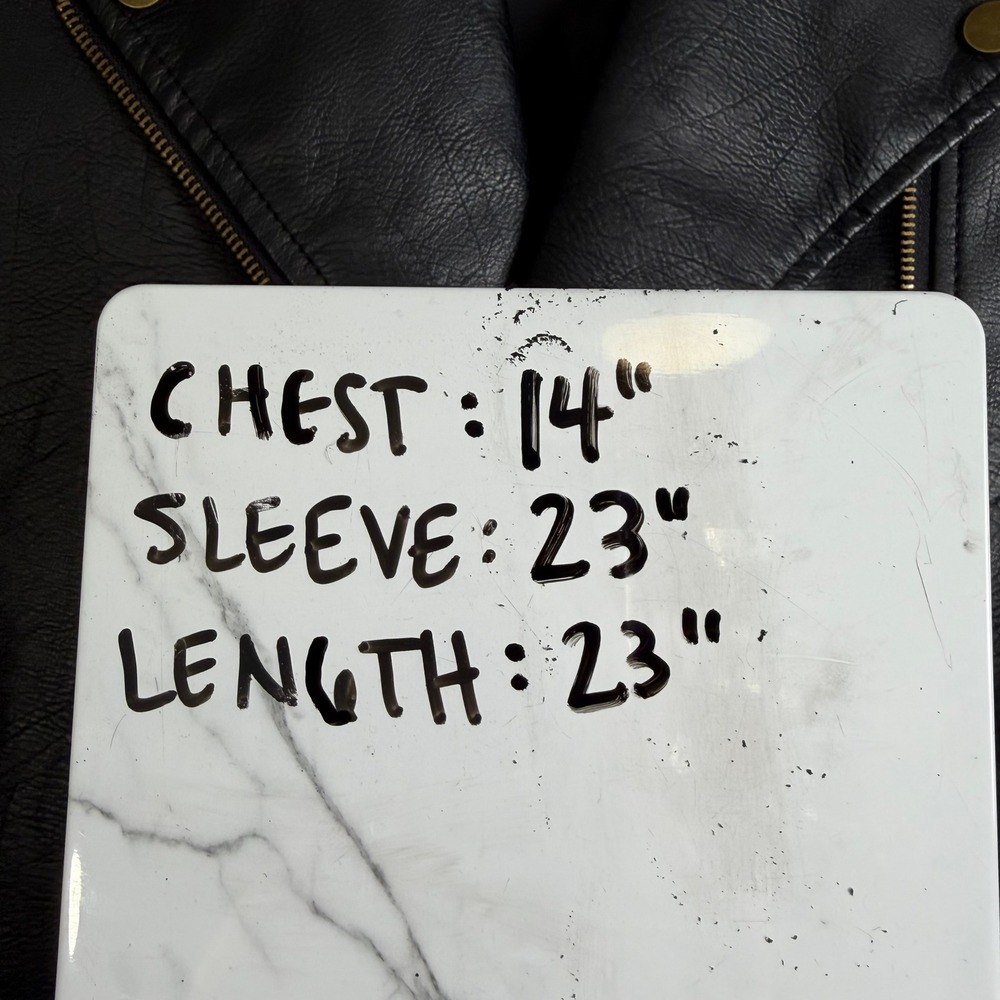 CHEST : 14"
SLEEVE : 23"
LENGTH : 23"